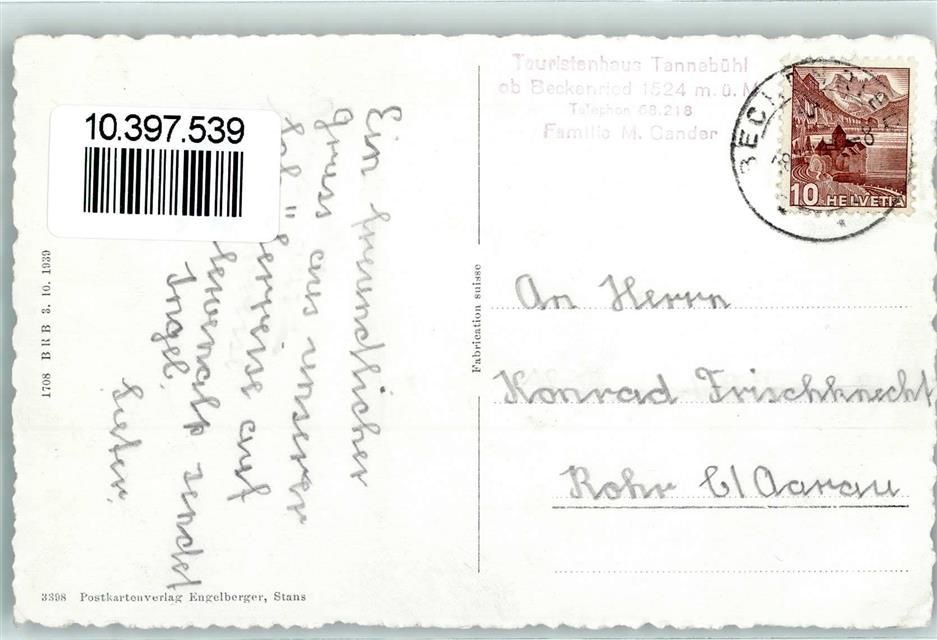 10.397.539
Touristenhaus Tannebühl
ob Beckenried 1524 m. ü. M
Telephon 68.218
Familie M. Gander
10 HELVETIA
Ein freundlicher
Gruss aus unserer
auf
sendet
An Herrn
Konrad Frischknecht
Rohr b/Aarau
Fabrication suisse
1708 BRB 3. 10. 1939
3398 Postkartenverlag Engelberger, Stans